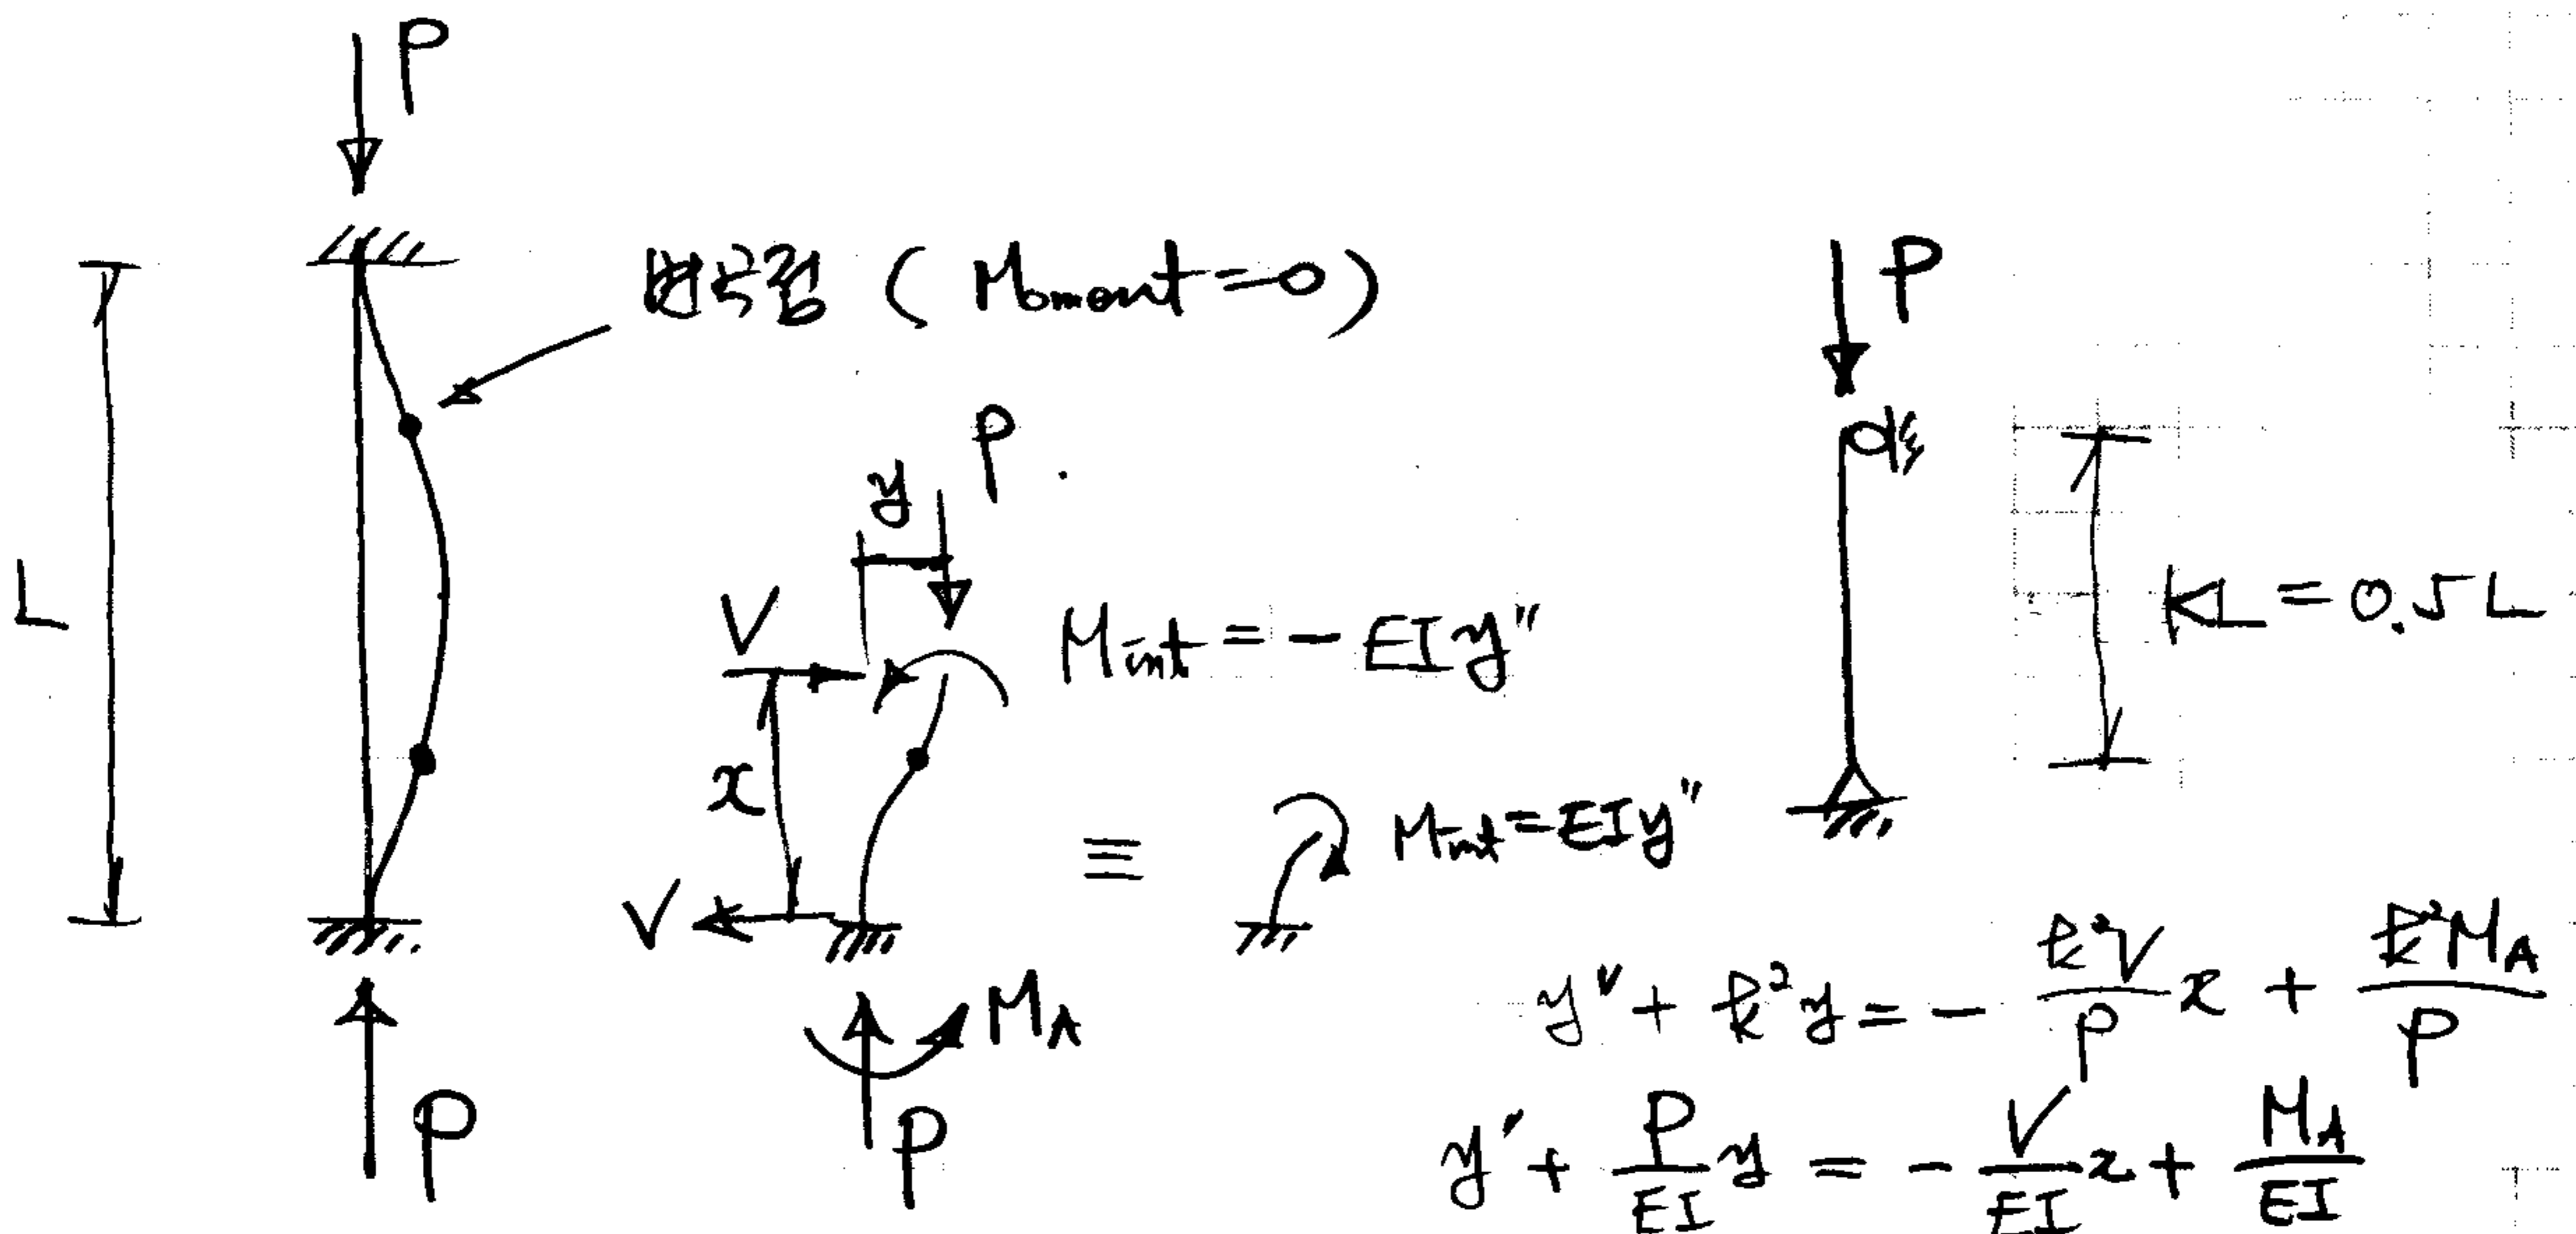 P
변곡점 (Moment=0)
P
L
y
P
V
M_int = - EI y"
KL = 0.5L
x
≡
M_int = EI y"
V
M_A
P
P
y" + k²y = - k²V/P x + k²M_A/P
y' + P/EI y = - V/EI x + M_A/EI